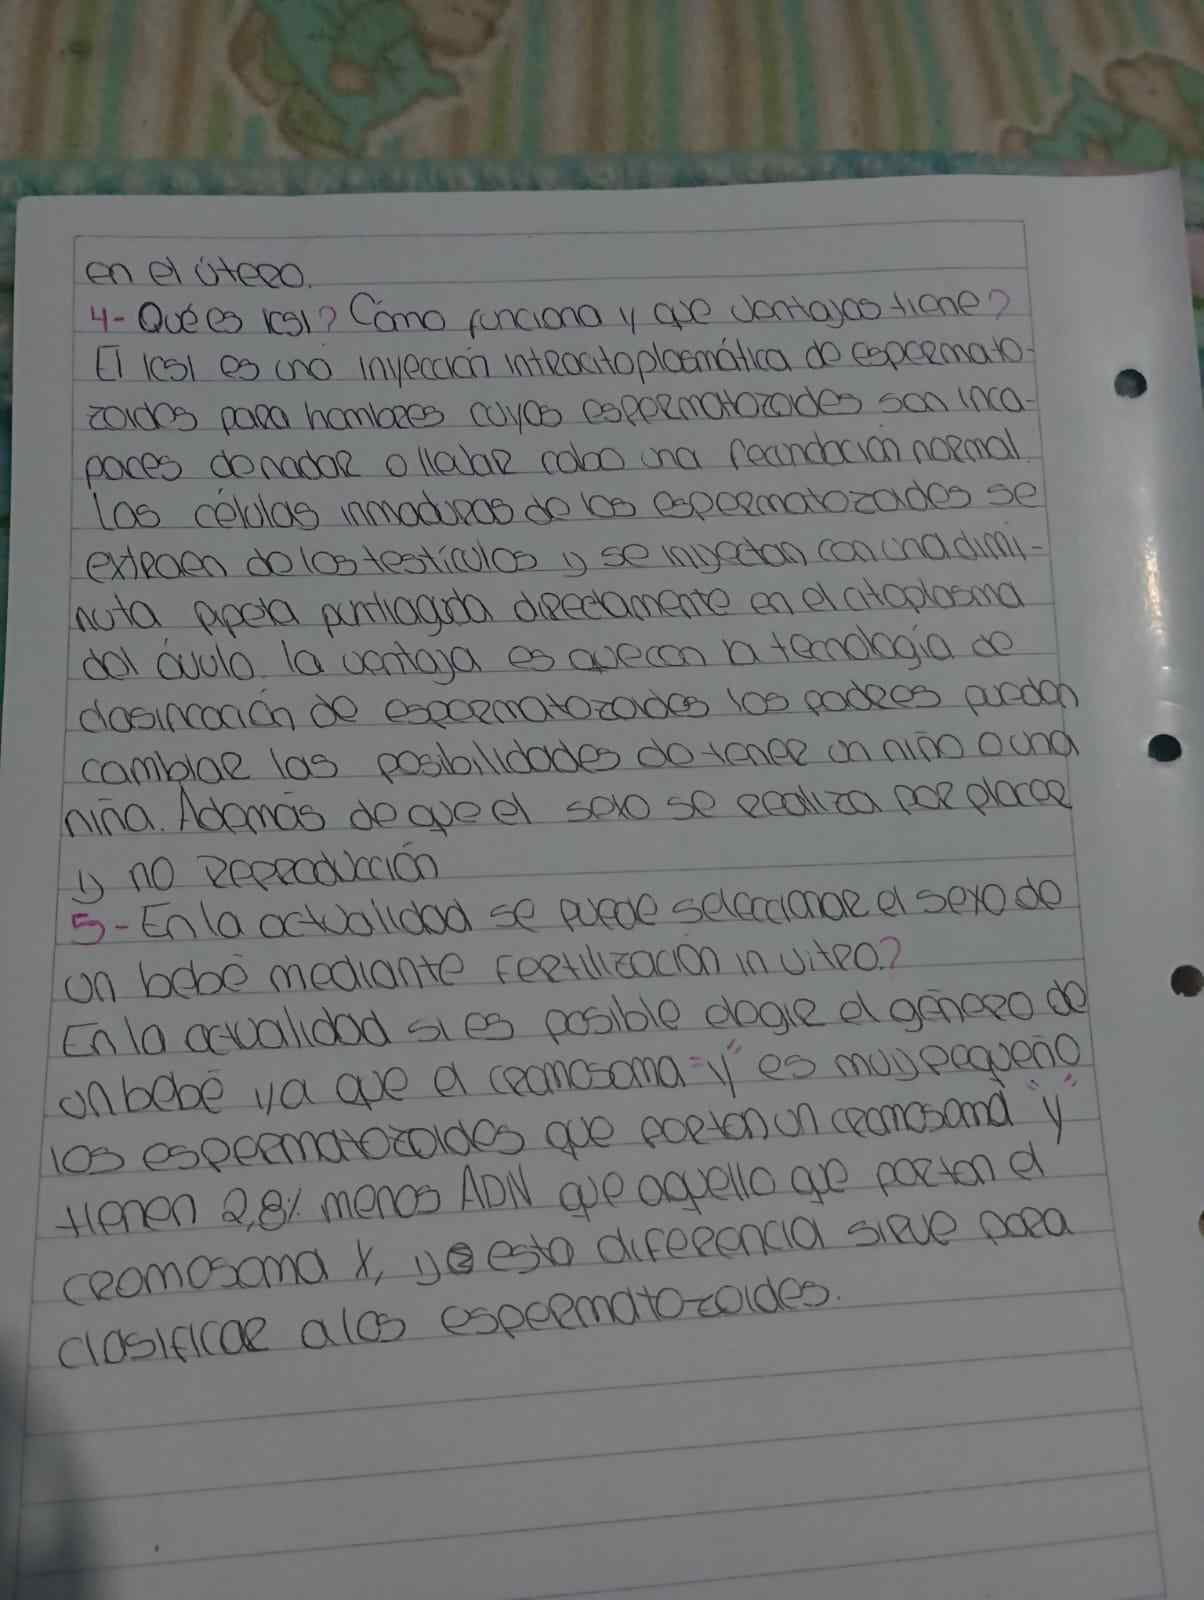 en el útero.
4- Qué es ICSI? Cómo funciona y que ventajas tiene?
El ICSI es una inyección intracitoplasmática de espermato-
zoides para hombres cuyos espermatozoides son inca-
paces de nadar o llevar cabo una fecundación normal.
Las células inmaduras de los espermatozoides se
extraen de los testículos y se inyectan con una dimi-
nuta pipeta puntiaguda directamente en el citoplasma
del óvulo. la ventaja es que con la tecnología de
clasificación de espermatozoides los padres puedan
cambiar las posibilidades de tener un niño o una
niña. Además de que el sexo se realiza por placer
y no reproducción
5- En la actualidad se puede seleccionar el sexo de
un bebé mediante fertilización in vitro.?
En la actualidad si es posible elegir el género de
un bebé ya que el cromosoma "y" es muy pequeño
los espermatozoides que portan un cromosoma "y"
tienen 2,8% menos ADN que aquello que portan el
cromosoma X, y esta diferencia sirve para
clasificar a los espermatozoides.